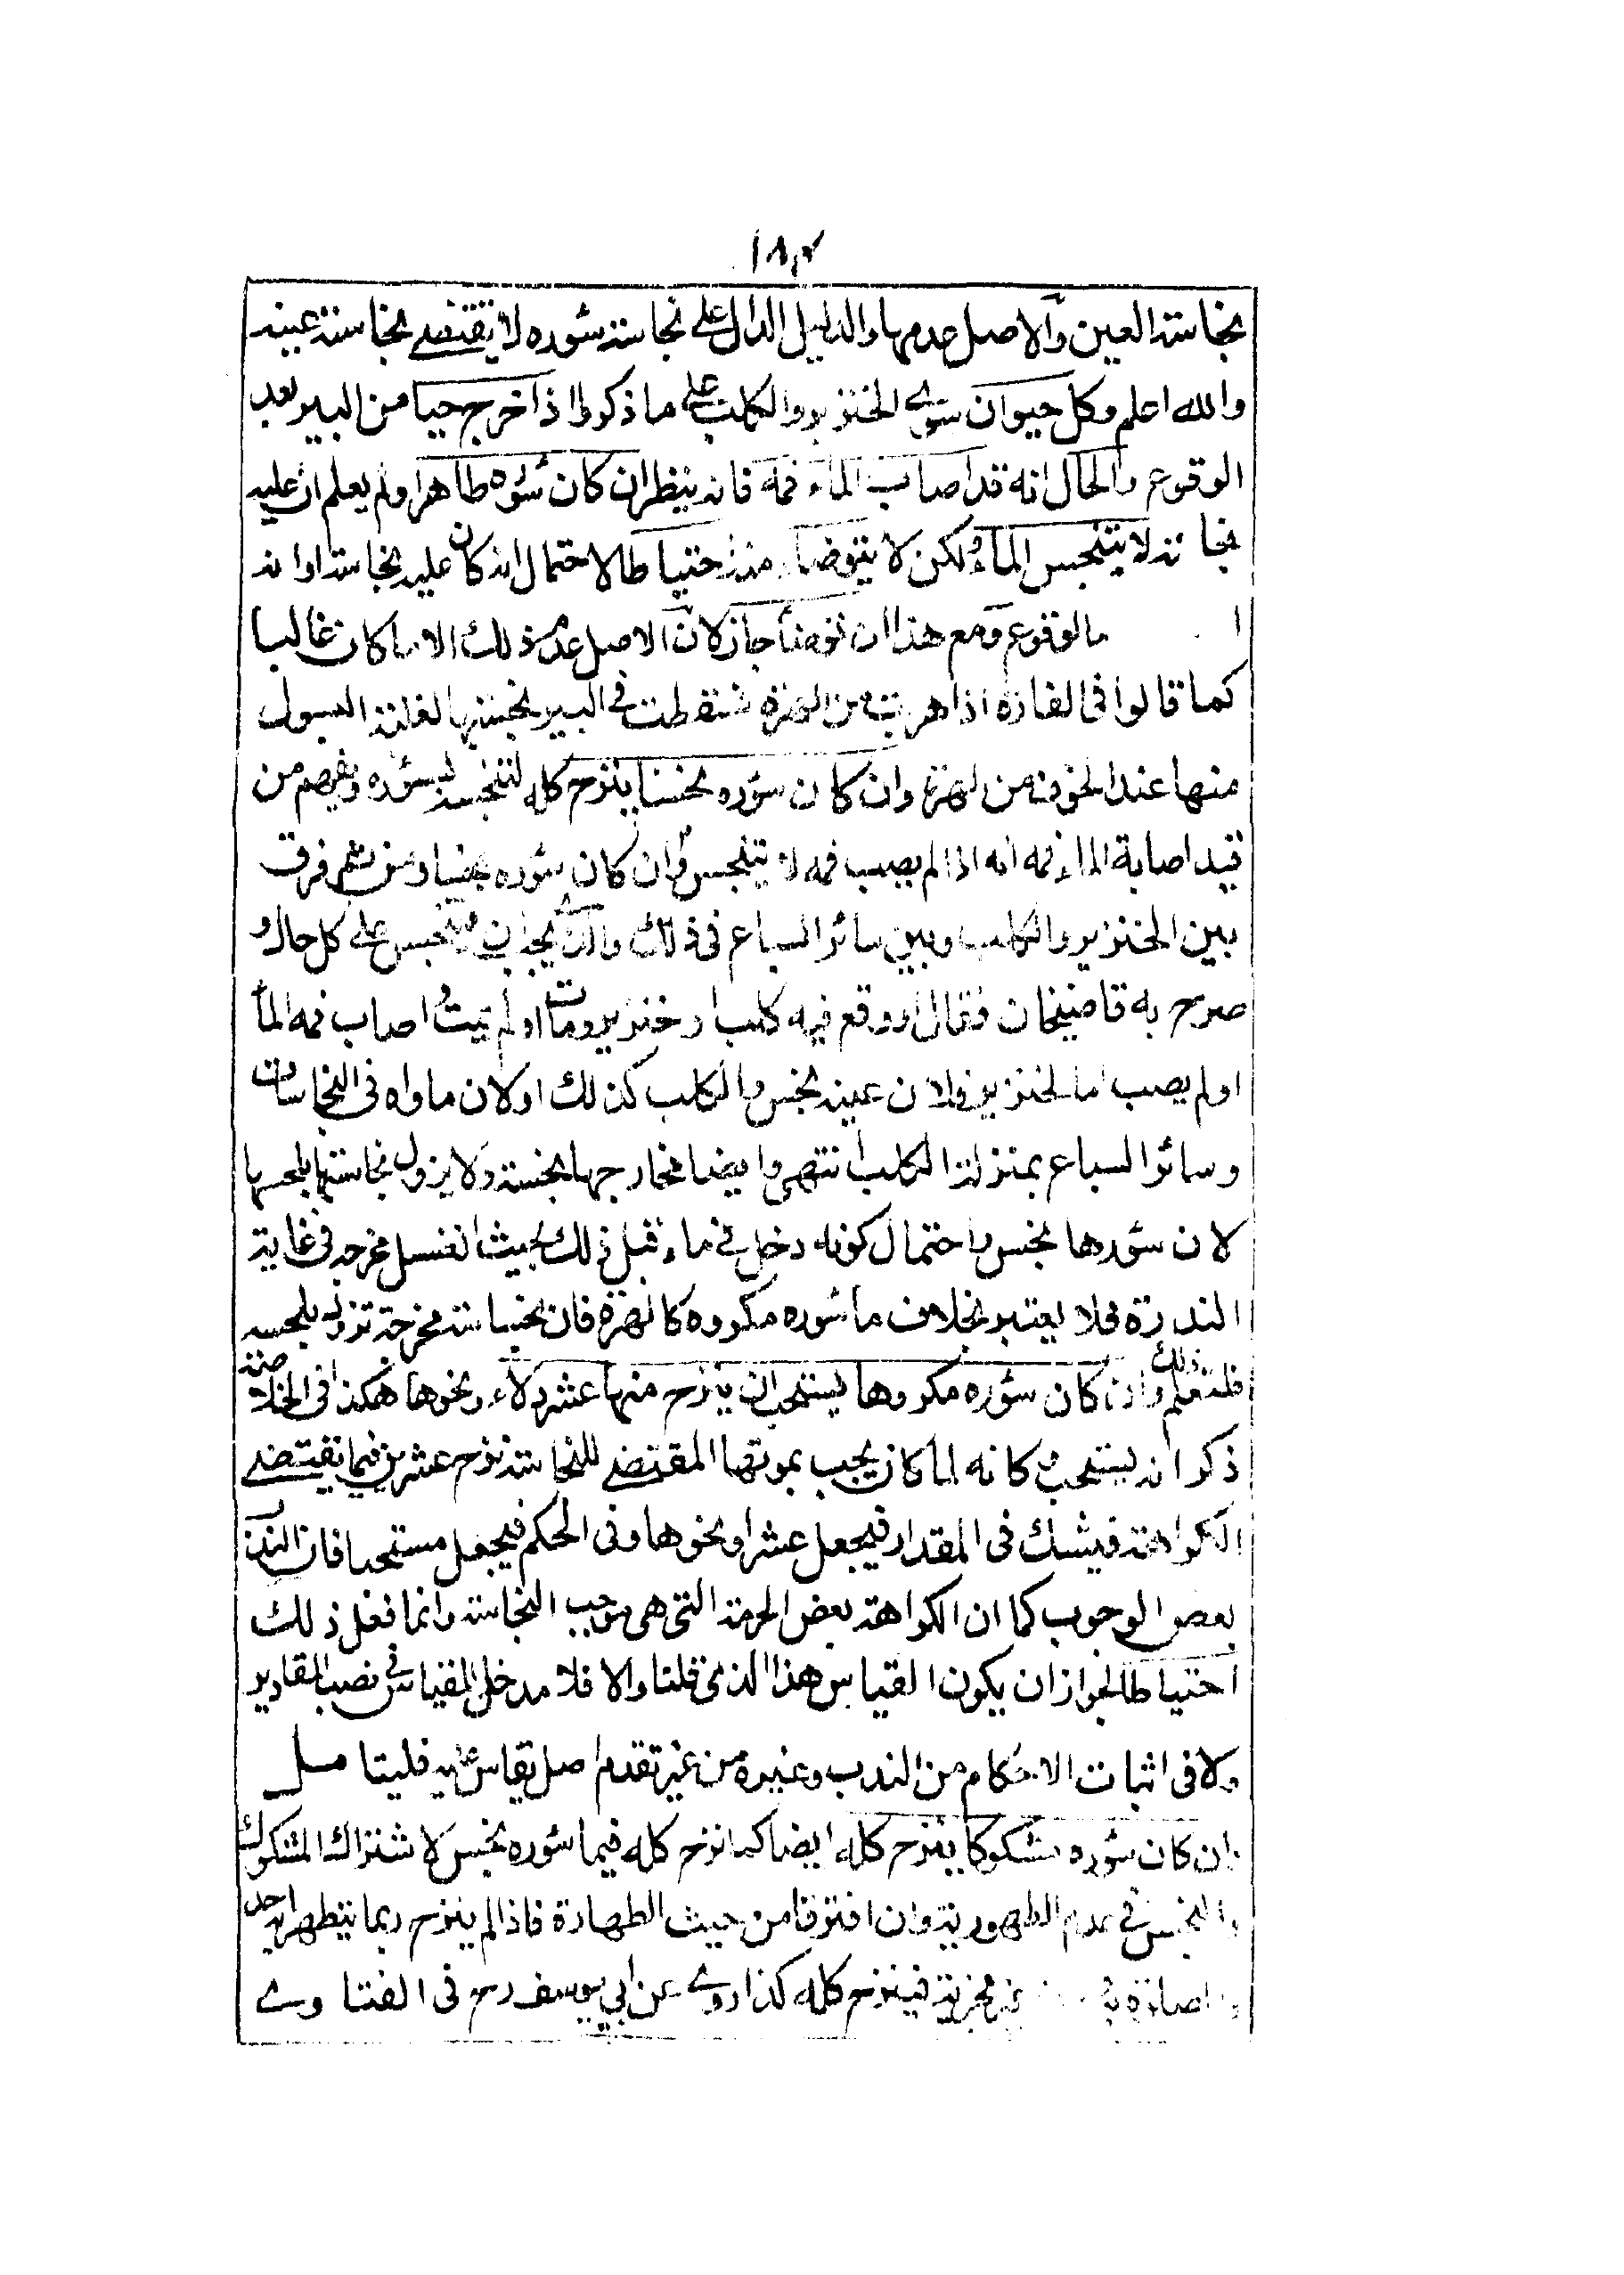 نجاسة العين والاصل عدمها والدليل الدال على نجاسة سؤره لا يقتضى نجاسة عينه
والله اعلم وكل حيوان سوى الخنزير والكلب على ما ذكر اذا اخرج حيا من البير بعد
الوقوع والحال انه قد اصاب الماء فمه فانه ينظر ان كان سؤره طاهرا ولم يعلم ان عليه
نجاسة لا يتنجس الماء ولكن لا يتوضأ منه احتياطا لاحتمال انه كان عليه نجاسة او انه
بالوقوع ومع هذا ان توضأ جاز لان الاصل عدم ذلك الا ما كان غالبا
كما قالوا فى الفارة اذا هربت من الهرة فسقطت فى البير نجستها لغلبة البول
منها عند الخوف من الهرة وان كان سؤره نجسا ينزح كله لتنجسه بسؤره ويفهم من
قيد اصابة الماء فمه انه اذا لم يصب فمه لا يتنجس وان كان سؤره نجسا ومن ثم فرق
بين الخنزير والكلب وبين سائر السباع فى ذلك على كل حال و
صرح به قاضيخان فقال او وقع فيه كلب او خنزير ومات او لم يمت اصاب فمه الماء
او لم يصب اما الخنزير فلان عينه نجس والكلب كذلك او لان ماواه فى النجاسات
وسائر السباع بمنزلة الكلب انتهى وايضا مخارجها نجسة ولا يزول نجاستها بلحسها
لان سؤرها نجس واحتمال كونه دخل فى ماء قبل ذلك بحيث انغسل مخرجه فى غاية
الندرة فلا يعتبر بخلاف ما سؤره مكروه كالهرة فان نجاسة مخرجه تزول بلحسه
فلتعلم ذلك وان كان سؤره مكروها يستحب ان ينزح منها عشر دلاء ونحوها هكذا فى الخلاصة
ذكر انه يستحب وكانه لما كان يجب بموتها المقتضى للنجاسة نزح عشرين فيما تقتضى
الكراهة فيشك فى المقدار فيجعل عشرا ونحوها وفى الحكم فيجعل مستحبا فان الندب
بعض الوجوب كما ان الكراهة بعض الحرمة التى هى موجب النجاسة وانما فعل ذلك
احتياطا لجواز ان يكون القياس هذا الذى قلنا والا فلا مدخل للقياس فى نصب المقادير
ولا فى اثبات الاحكام من الندب وغيره من غير تقدم اصل يقاس عليه فليتامل
وان كان سؤره مشكوكا ينزح كله ايضا كما نزح كله فيما سؤره نجس لاشتراك المشكوك
والنجس فى عدم الطهورية وان افترقا من حيث الطهارة فاذا لم ينزح ربما يتطهر به احد
فينزح كله كذا روى عن ابى يوسف رح فى الفتاوى